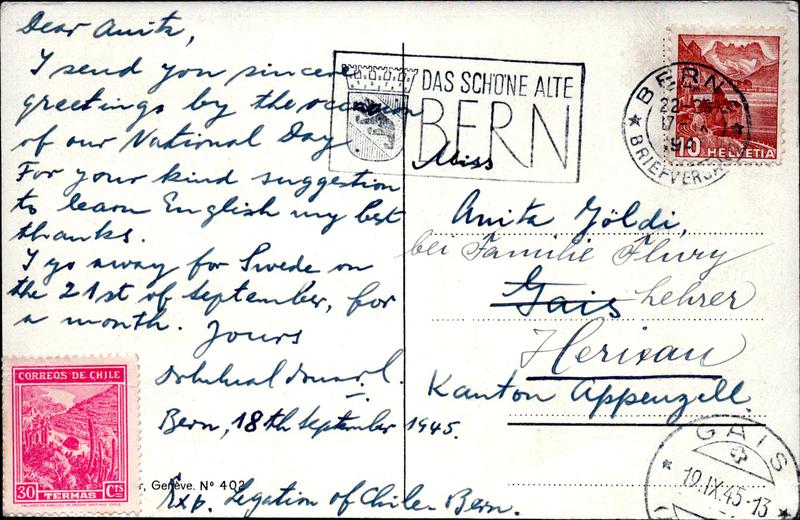 Dear Anita,
I send you sincere
greetings by the occasion
of our National Day.
For your kind suggestion
to learn English my best
thanks.
I go away for Swede on
the 21st of September, for
a month. Yours
Bern, 18th September 1945.
Exp. Legation of Chile-Bern.
DAS SCHÖNE ALTE
BERN
BERN
BRIEFVERSAND
10 HELVETIA
Miss
Anita Göldi,
bei Familie Flury
Gais Lehrer
Herisau
Kanton Appenzell.
CORREOS DE CHILE
30 TERMAS CTS
, Genève. Nº 402
GAIS
19.IX.45-13